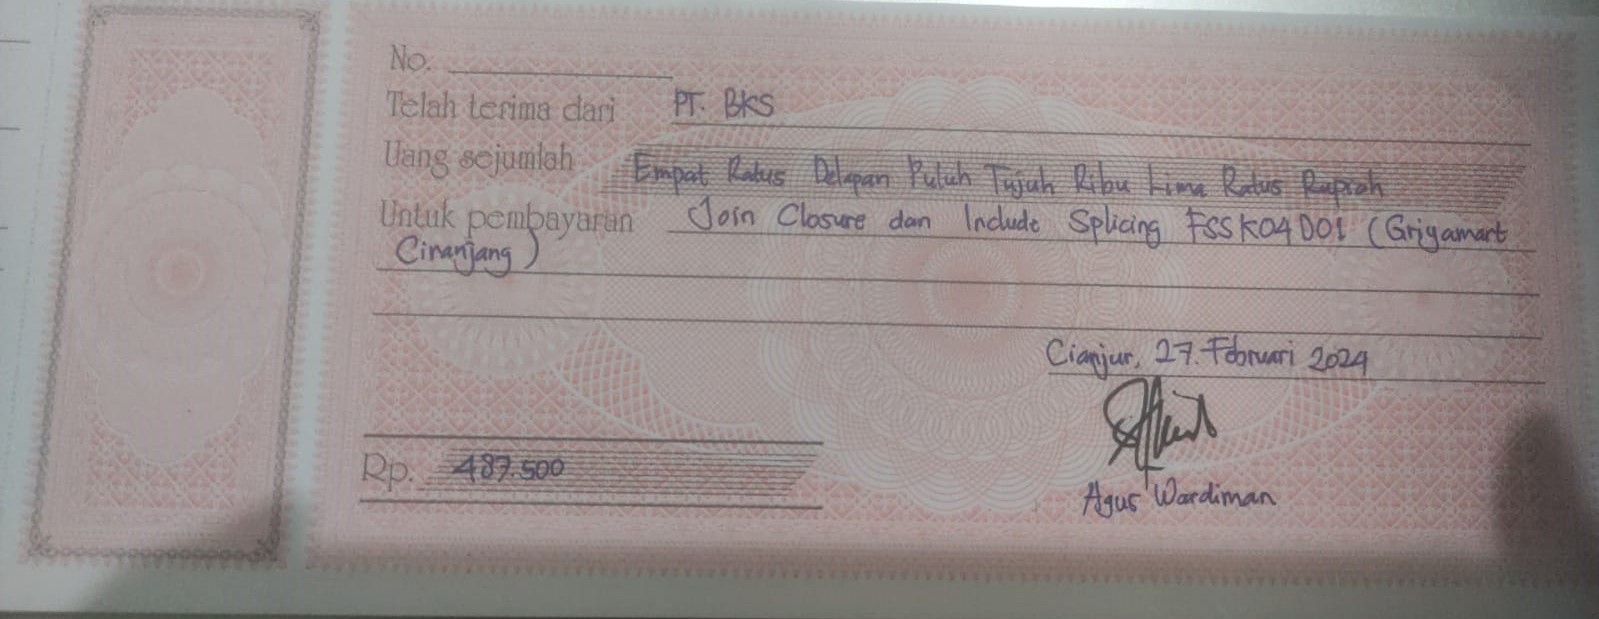 No.
Telah terima dari PT. BKS
Uang sejumlah Empat Ratus Delapan Puluh Tujuh Ribu Lima Ratus Rupiah
Untuk pembayaran Join Closure dan Include Splicing FSSK04D01 (Griyamart
Ciranjang)
Cianjur, 27. Februari 2024
Rp. 487.500
Agus Wardiman